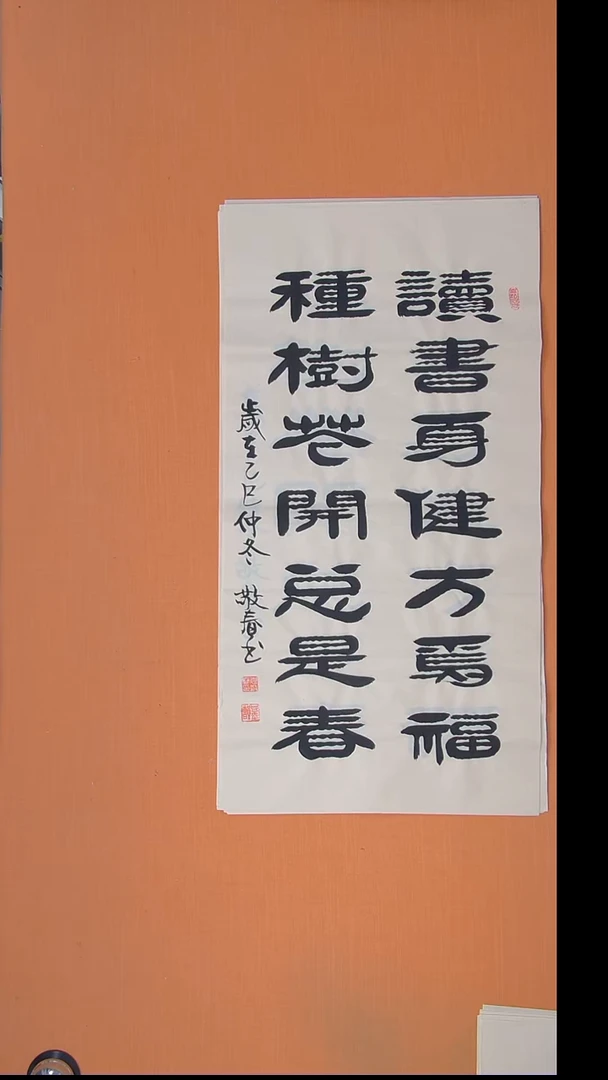 讀書身健方為福
種樹花開总是春
歲在乙巳仲冬 敬春书